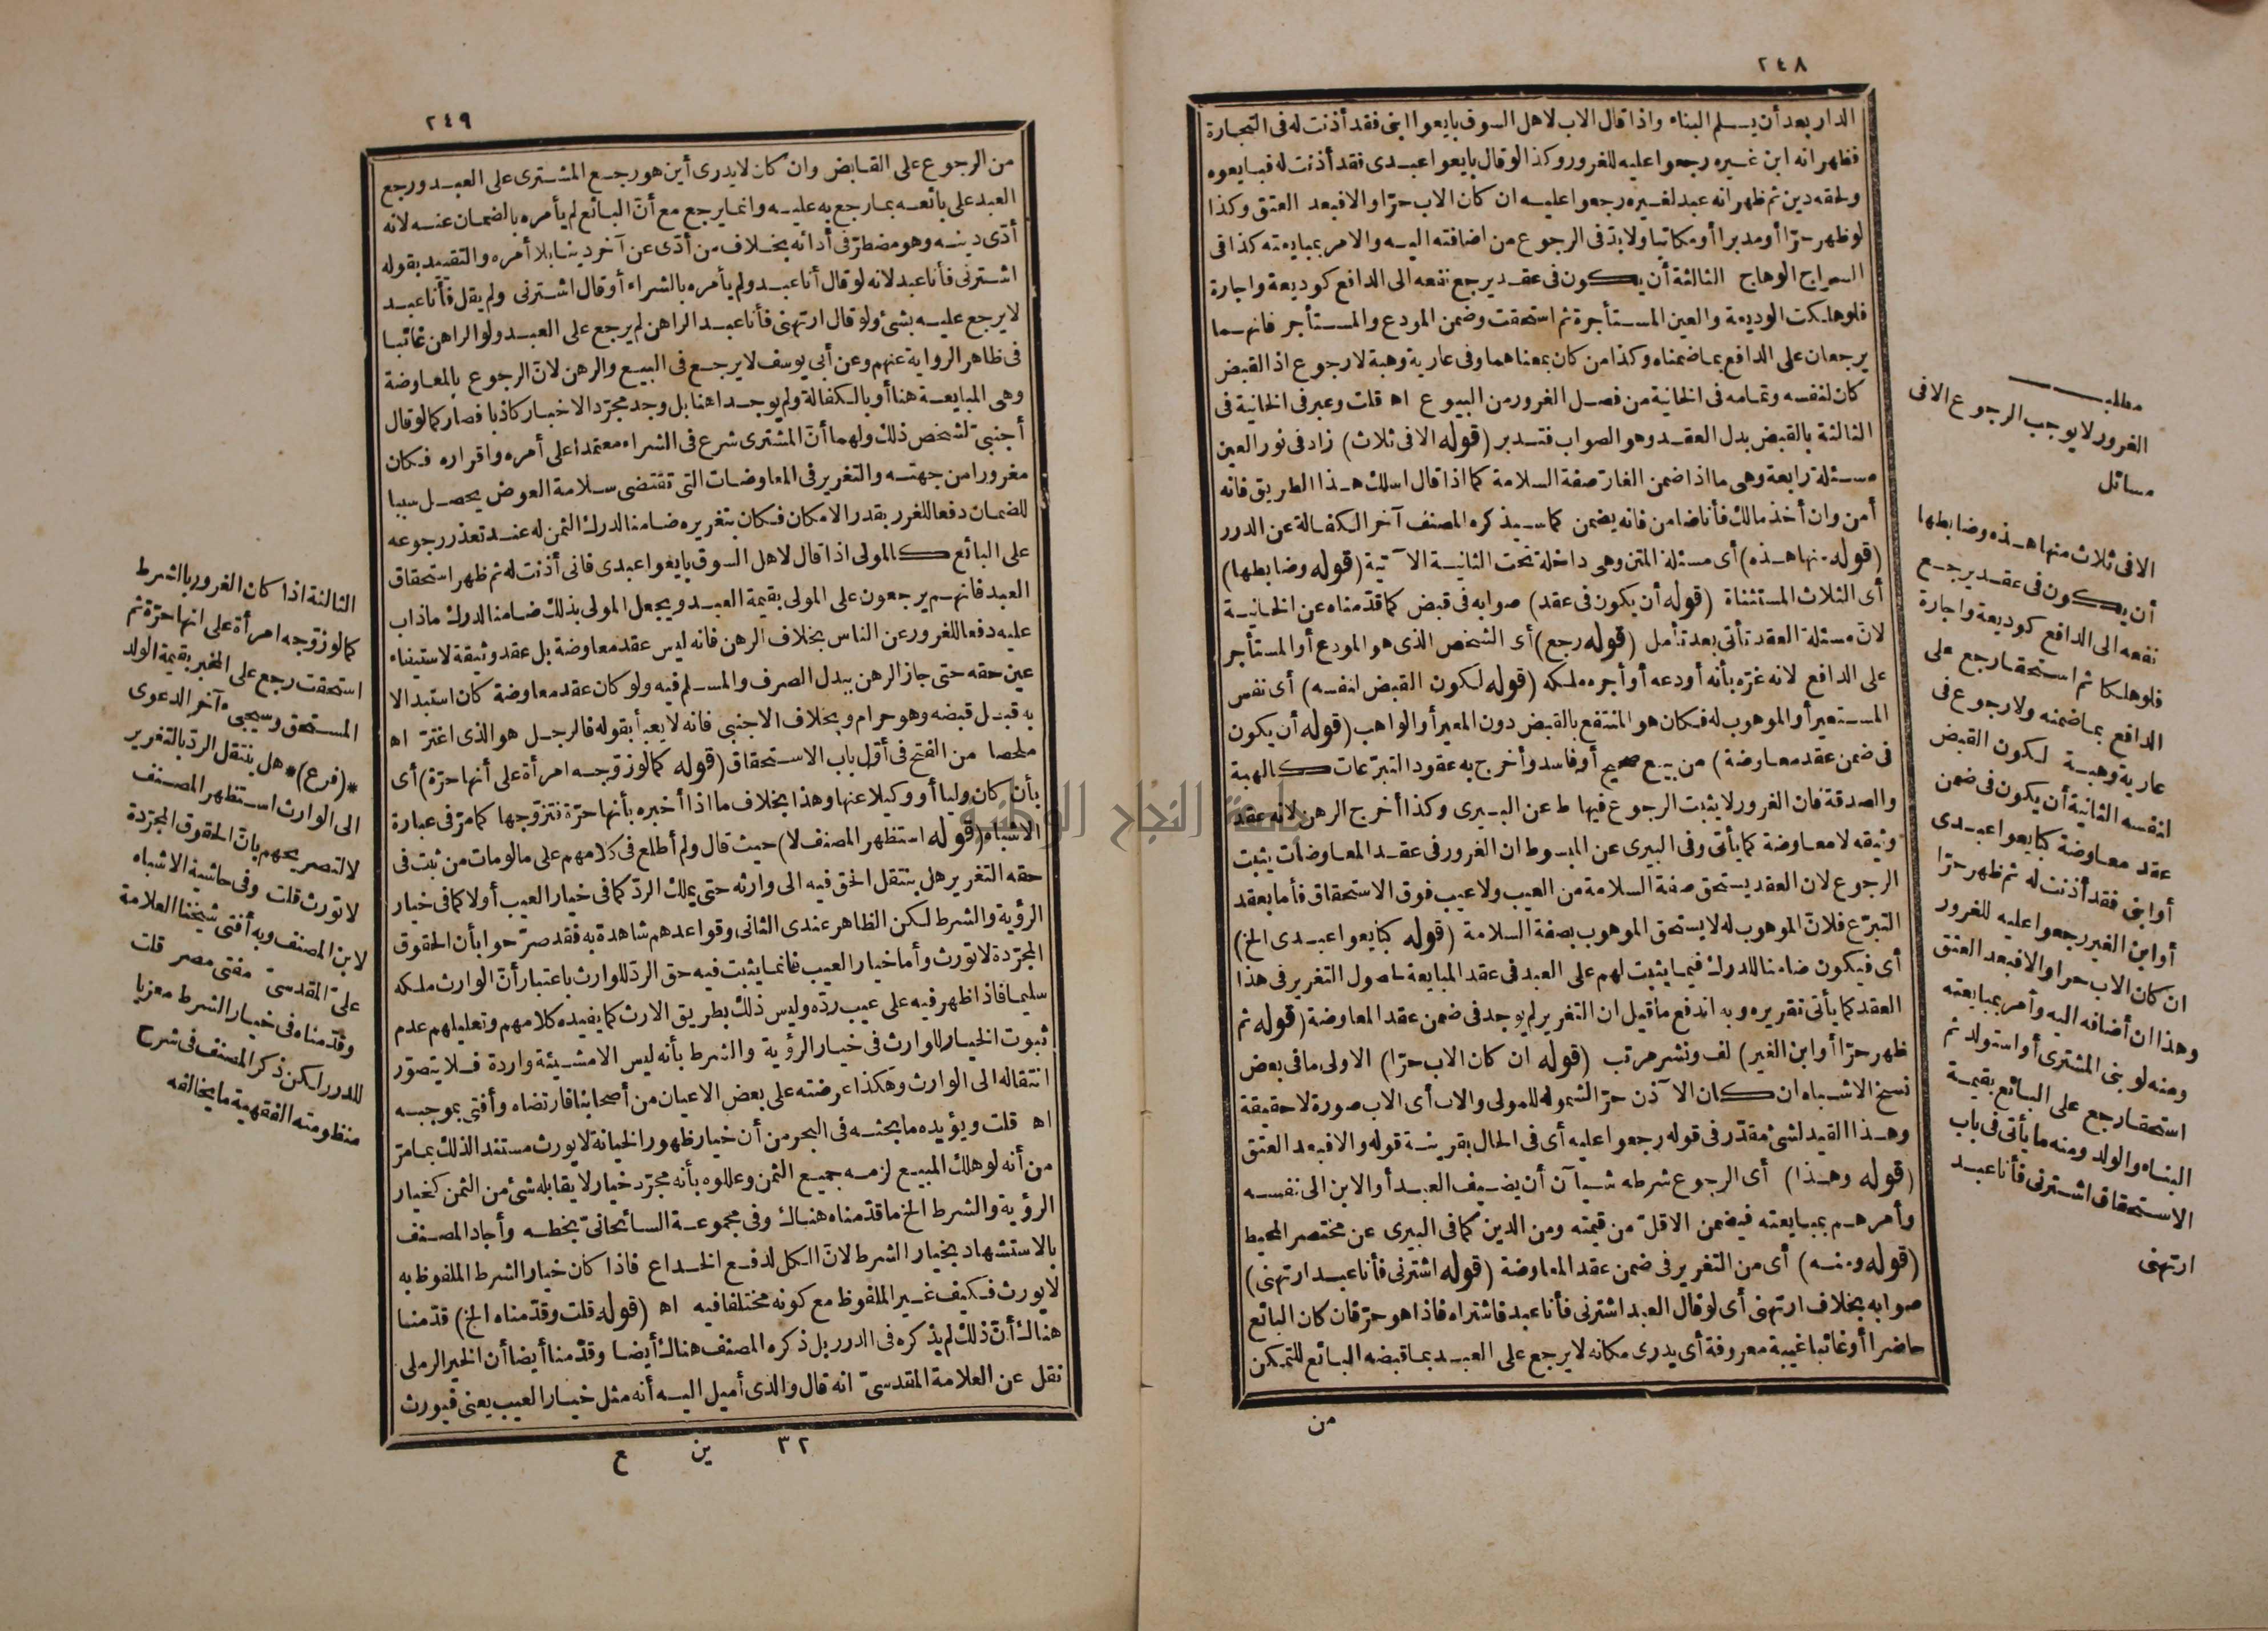 ٢٤٨
الدار بعد أن يسلم البناء واذا قال الاب لاهل السوق بايعوا ابنى فقد أذنت له فى التجارة
فظهر انه ابن غيره رجعوا عليه للغرور وكذا لو قال بايعوا عبدى فقد أذنت له فبايعوه
ولحقه دين ثم ظهر انه عبد لغيره رجعوا عليه ان كان الاب حرّا والا فبعد العتق وكذا
لو ظهر حرّا أو مدبرا أو مكاتبا ولابدّ فى الرجوع من اضافته اليه والامر بمبايعته كذا فى
السراج الوهاج الثالثة أن يكون فى عقد يرجع نفعه الى الدافع كوديعة واجارة
فلو هلكت الوديعة والعين المستأجرة ثم استحقت وضمن المودع والمستأجر فانهما
يرجعان على الدافع بما ضمناه وكذا من كان بمعناهما وفى عارية وهبة لا رجوع اذ القبض
كان لنفسه وتمامه فى الخانية من فصل الغرور من البيوع اه قلت وعبر فى الخانية فى
الثالثة بالقبض بدل العقد وهو الصواب فتدبر (قوله الا فى ثلاث) زاد فى نور العين
مسئلة رابعة وهى ما اذا ضمن الغارّ صفة السلامة كما اذا قال اسلك هذا الطريق فانه
أمن وان أخذ مالك فأنا ضامن فانه يضمن كما سيذكره المصنف آخر الكفالة عن الدرر
(قوله منها هذه) أى مسئلة المتن وهى داخلة تحت الثانية الآتية (قوله وضابطها)
أى الثلاث المستثناة (قوله أن يكون فى عقد) صوابه فى قبض كما قدّمناه عن الخانية
لانّ مسئلة العقد تأتى بعد تأمل (قوله رجع) أى الشخص الذى هو المودع أو المستأجر
على الدافع لانه غرّه بأنه أودعه أو أجره ملكه (قوله لكون القبض لنفسه) أى نفس
المستعير أو الموهوب له فكان هو المنتفع بالقبض دون المعير أو الواهب (قوله أن يكون
فى ضمن عقد معاوضة) من بيع صحيح أو فاسد وأخرج به عقود التبرّعات كالهبة
والصدقة فان الغرور لا يثبت الرجوع فيها ط عن البيرى وكذا أخرج الرهن لانه عقد
وثيقه لا معاوضة كما يأتى وفى البيرى عن المبسوط ان الغرور فى عقد المعاوضات يثبت
الرجوع لان العقد يستحق صفة السلامة من العيب ولا عيب فوق الاستحقاق فأما بعقد
التبرّع فلانّ الموهوب له لا يستحق الموهوب بصفة السلامة (قوله كبايعوا عبدى الخ)
أى فيكون ضامنا للدرك فيما يثبت لهم على العبد فى عقد المبايعة لحصول التغرير فى هذا
العقد كما يأتى تقريره وبه اندفع ما قيل ان التغرير لم يوجد فى ضمن عقد المعاوضة (قوله ثم
ظهر حرّا أو ابن الغير) لف ونشر مرتب (قوله ان كان الاب حرّا) الاولى ما فى بعض
نسخ الاشباه ان كان الآذن حرّا لشموله للمولى والاب أى الاب صورة لا حقيقة
وهذا القيد لشئ مقدّر فى قوله رجعوا عليه أى فى الحال بقرينة قوله والا فبعد العتق
(قوله وهذا) أى الرجوع شرطه شيآن أن يضيف العبد أو الابن الى نفسه
وأمرهم بمبايعته فيضمن الاقلّ من قيمته ومن الدين كما فى البيرى عن مختصر المحيط
(قوله ومنه) أى من التغرير فى ضمن عقد المعاوضة (قوله اشترنى فأنا عبد ارتهنى)
صوابه بخلاف ارتهنى أى لو قال العبد اشترنى فأنا عبد فاشتراه فاذا هو حرّ فان كان البائع
حاضرا أو غائبا غيبة معروفة أى يدرى مكانه لا يرجع على العبد بما قبضه البائع للتمكن
من
مطلب
الغرور لا يوجب الرجوع الا فى
مسائل
الا فى ثلاث منها هذه وضابطها
أن يكون فى عقد يرجع
نفعه الى الدافع كوديعة واجارة
فلو هلكا ثم استحقا رجع على
الدافع بما ضمنه ولا رجوع فى
عارية وهبة لكون القبض
لنفسه الثانية أن يكون فى ضمن
عقد معاوضة كبايعوا عبدى
أو ابنى فقد أذنت له ثم ظهر حرّا
أو ابن الغير رجعوا عليه للغرور
ان كان الاب حرا والا فبعد العتق
وهذا ان أضافه اليه وأمر بمبايعته
ومنه لو بنى المشترى أو استولد ثم
استحقا رجع على البائع بقيمة
البناء والولد ومنه ما يأتى فى باب
الاستحقاق اشترنى فأنا عبد
ارتهنى
٢٤٩
من الرجوع على القابض وان كان لا يدرى أين هو رجع المشترى على العبد ورجع
العبد على بائعه بما رجع به عليه وانما يرجع مع أنّ البائع لم يأمره بالضمان عنه لانه
أدّى دينه وهو مضطرّ فى أدائه بخلاف من أدّى عن آخر دينا بلا أمره والتقييد بقوله
اشترنى فأنا عبد لانه لو قال أنا عبد ولم يأمره بالشراء أو قال اشترنى ولم يقل فأنا عبد
لا يرجع عليه بشئ ولو قال ارتهنى فأنا عبد الراهن لم يرجع على العبد ولو الراهن غائبا
فى ظاهر الرواية عنهم وعن أبي يوسف لا يرجع فى البيع والرهن لانّ الرجوع بالمعاوضة
وهى المبايعة هنا أو بالكفالة ولم يوجدا هنا بل وجد مجرّد الاخبار كاذبا فصار كما لو قال
أجنبىّ لشخص ذلك ولهما أنّ المشترى شرع فى الشراء معتمدا على أمره واقراره فكان
مغرورا من جهته والتغرير فى المعاوضات التى تقتضى سلامة العوض يحصل سببا
للضمان دفعا للغرر بقدر الامكان فكان بتغريره ضامنا لدرك الثمن له عند تعذر رجوعه
على البائع كالمولى اذا قال لاهل السوق بايعوا عبدى فانى أذنت له ثم ظهر استحقاق
العبد فانهم يرجعون على المولى بقيمة العبد ويجعل المولى بذلك ضامنا لدرك ما ذاب
عليه دفعا للغرور عن الناس بخلاف الرهن فانه ليس عقد معاوضة بل عقد وثيقة لاستيفاء
عين حقه حتى جاز الرهن ببدل الصرف والمسلم فيه ولو كان عقد معاوضة كان استبدالا
به قبل قبضه وهو حرام وبخلاف الاجنبي فانه لا يعبأ بقوله فالرجل هو الذى اغترّ اه
ملخصا من الفتح فى أوّل باب الاستحقاق (قوله كما لو زوّجه امرأة على أنها حرّة) أى
بأن كان وليا أو وكيلا عنها وهذا بخلاف ما اذا أخبره بأنها حرّة فتزوّجها كما مرّ فى عبارة
الاشباه (قوله استظهر المصنف لا) حيث قال ولم أطلع فى كلامهم على ما لو مات من ثبت فى
حقه التغرير هل ينتقل الحق فيه الى وارثه حتى يملك الردّ كما فى خيار العيب أو لا كما فى خيار
الرؤية والشرط لكن الظاهر عندى الثانى وقواعدهم شاهدة به فقد صرّحوا بأن الحقوق
المجرّدة لا تورث وأما خيار العيب فانما يثبت فيه حق الردّ للوارث باعتبار أنّ الوارث ملكه
سليما فاذا ظهر فيه على عيب ردّه وليس ذلك بطريق الارث كما يفيده كلامهم وتعليلهم عدم
ثبوت الخيار للوارث فى خيار الرؤية والشرط بأنه ليس الا مشيئة وارادة فلا يتصوّر
انتقاله الى الوارث وهكذا عرضته على بعض الاعيان من أصحابنا فارتضاه وأفتى بموجبه
اه قلت ويؤيده ما بحثه فى البحر من أن خيار ظهور الخيانة لا يورث مستندا لذلك بما مرّ
من أنه لو هلك المبيع لزمه جميع الثمن وعللوه بأنه مجرّد خيار لا يقابله شئ من الثمن كخيار
الرؤية والشرط الخ ما قدّمناه هناك وفى مجموعة السائحانىّ بخطه وأجاد المصنف
بالاستشهاد بخيار الشرط لانّ الكل لدفع الخداع فاذا كان خيار الشرط الملفوظ به
لا يورث فكيف غير الملفوظ مع كونه مختلفا فيه اه (قوله قلت وقدّمناه الخ) قدّمنا
هناك أنّ ذلك لم يذكره فى الدرر بل ذكره المصنف هناك أيضا وقدّمنا أيضا أن الخير الرملى
نقل عن العلامة المقدسىّ انه قال والذى أميل اليه أنه مثل خيار العيب يعنى فيورث
٣٢ ين ع
الثالثة اذا كان الغرور بالشرط
كما لو زوّجه امرأة على انها حرّة ثم
استحقت رجع على المخبر بقيمة الولد
المستحق وسيجىء آخر الدعوى
*(فرع)* هل ينتقل الردّ بالتغرير
الى الوارث استظهر المصنف
لا لتصريحهم بانّ الحقوق المجرّدة
لا تورث قلت وفى حاشية الاشباه
لابن المصنف وبه أفتى شيخنا العلامة
علىّ المقدسىّ مفتى مصر قلت
وقدّمناه فى خيار الشرط معزيا
للدرر لكن ذكر المصنف فى شرح
منظومته الفقهية ما يخالفه
جامعة النجاح الوطنية